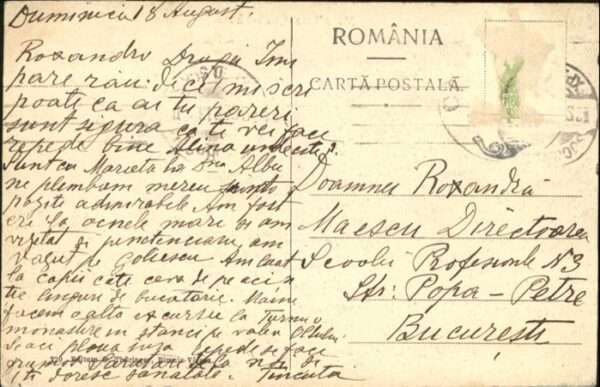 Duminică 18 August.
Roxandro Dragă Îmi
pare rău de ce mi scri
poate ca ai tu păreri
sunt sigura ca te vei face
repede bine Alina
Sunt cu Marieta la D-na Albu
ne plimbăm mereu
poziți admirabile Am fost
eri la ocnele mari și am
vizitat și penitenciaru am
văzut pe Golescu Am luat
la copii câte ceva de pe aici
linguri de bucătărie. Maine
facem o alta excursie la Turnu o
monastire in stanci pe valea Oltului.
Și aci ploua însă repede se face
frumos
Îți doresc sănătate. Tincuța
ROMÂNIA
CARTĂ POSTALĂ
Doamnei Roxandra
Maescu Directoarea
Scoalei Profesionale N3
Str: Popa-Petre
București